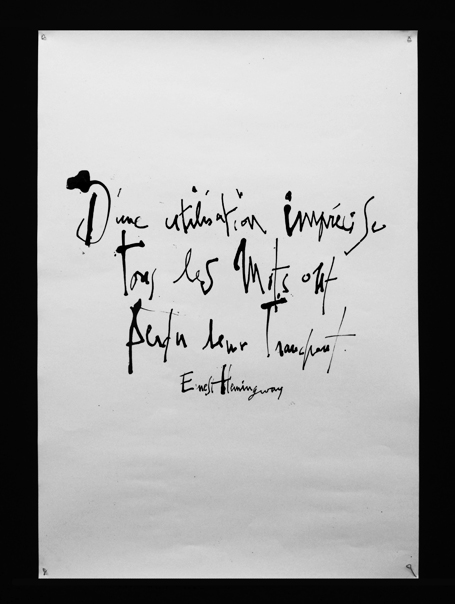 D'une utilisation imprécise
Tous les Mots ont
Perdu leur Tranchant.
Ernest Hemingway